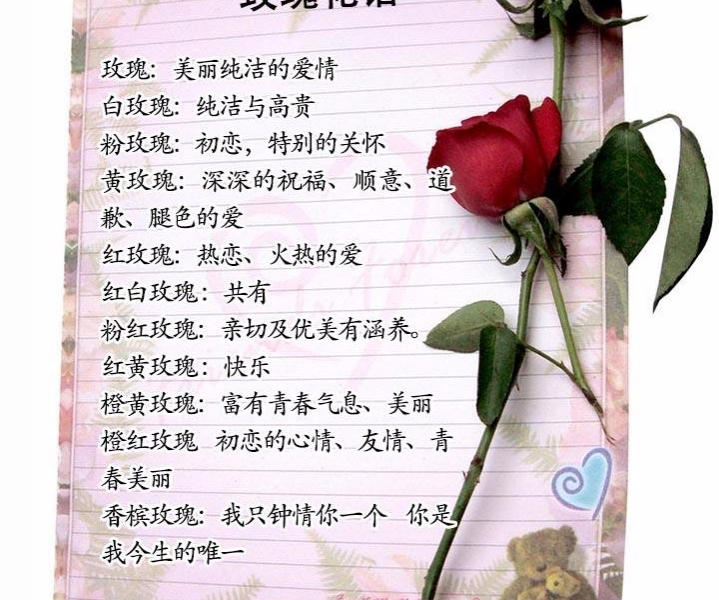 玫瑰花语
玫瑰：美丽纯洁的爱情
白玫瑰：纯洁与高贵
粉玫瑰：初恋，特别的关怀
黄玫瑰：深深的祝福、顺意、道
歉、腿色的爱
红玫瑰：热恋、火热的爱
红白玫瑰：共有
粉红玫瑰：亲切及优美有涵养。
红黄玫瑰：快乐
橙黄玫瑰：富有青春气息、美丽
橙红玫瑰 初恋的心情、友情、青
春美丽
香槟玫瑰：我只钟情你一个 你是
我今生的唯一